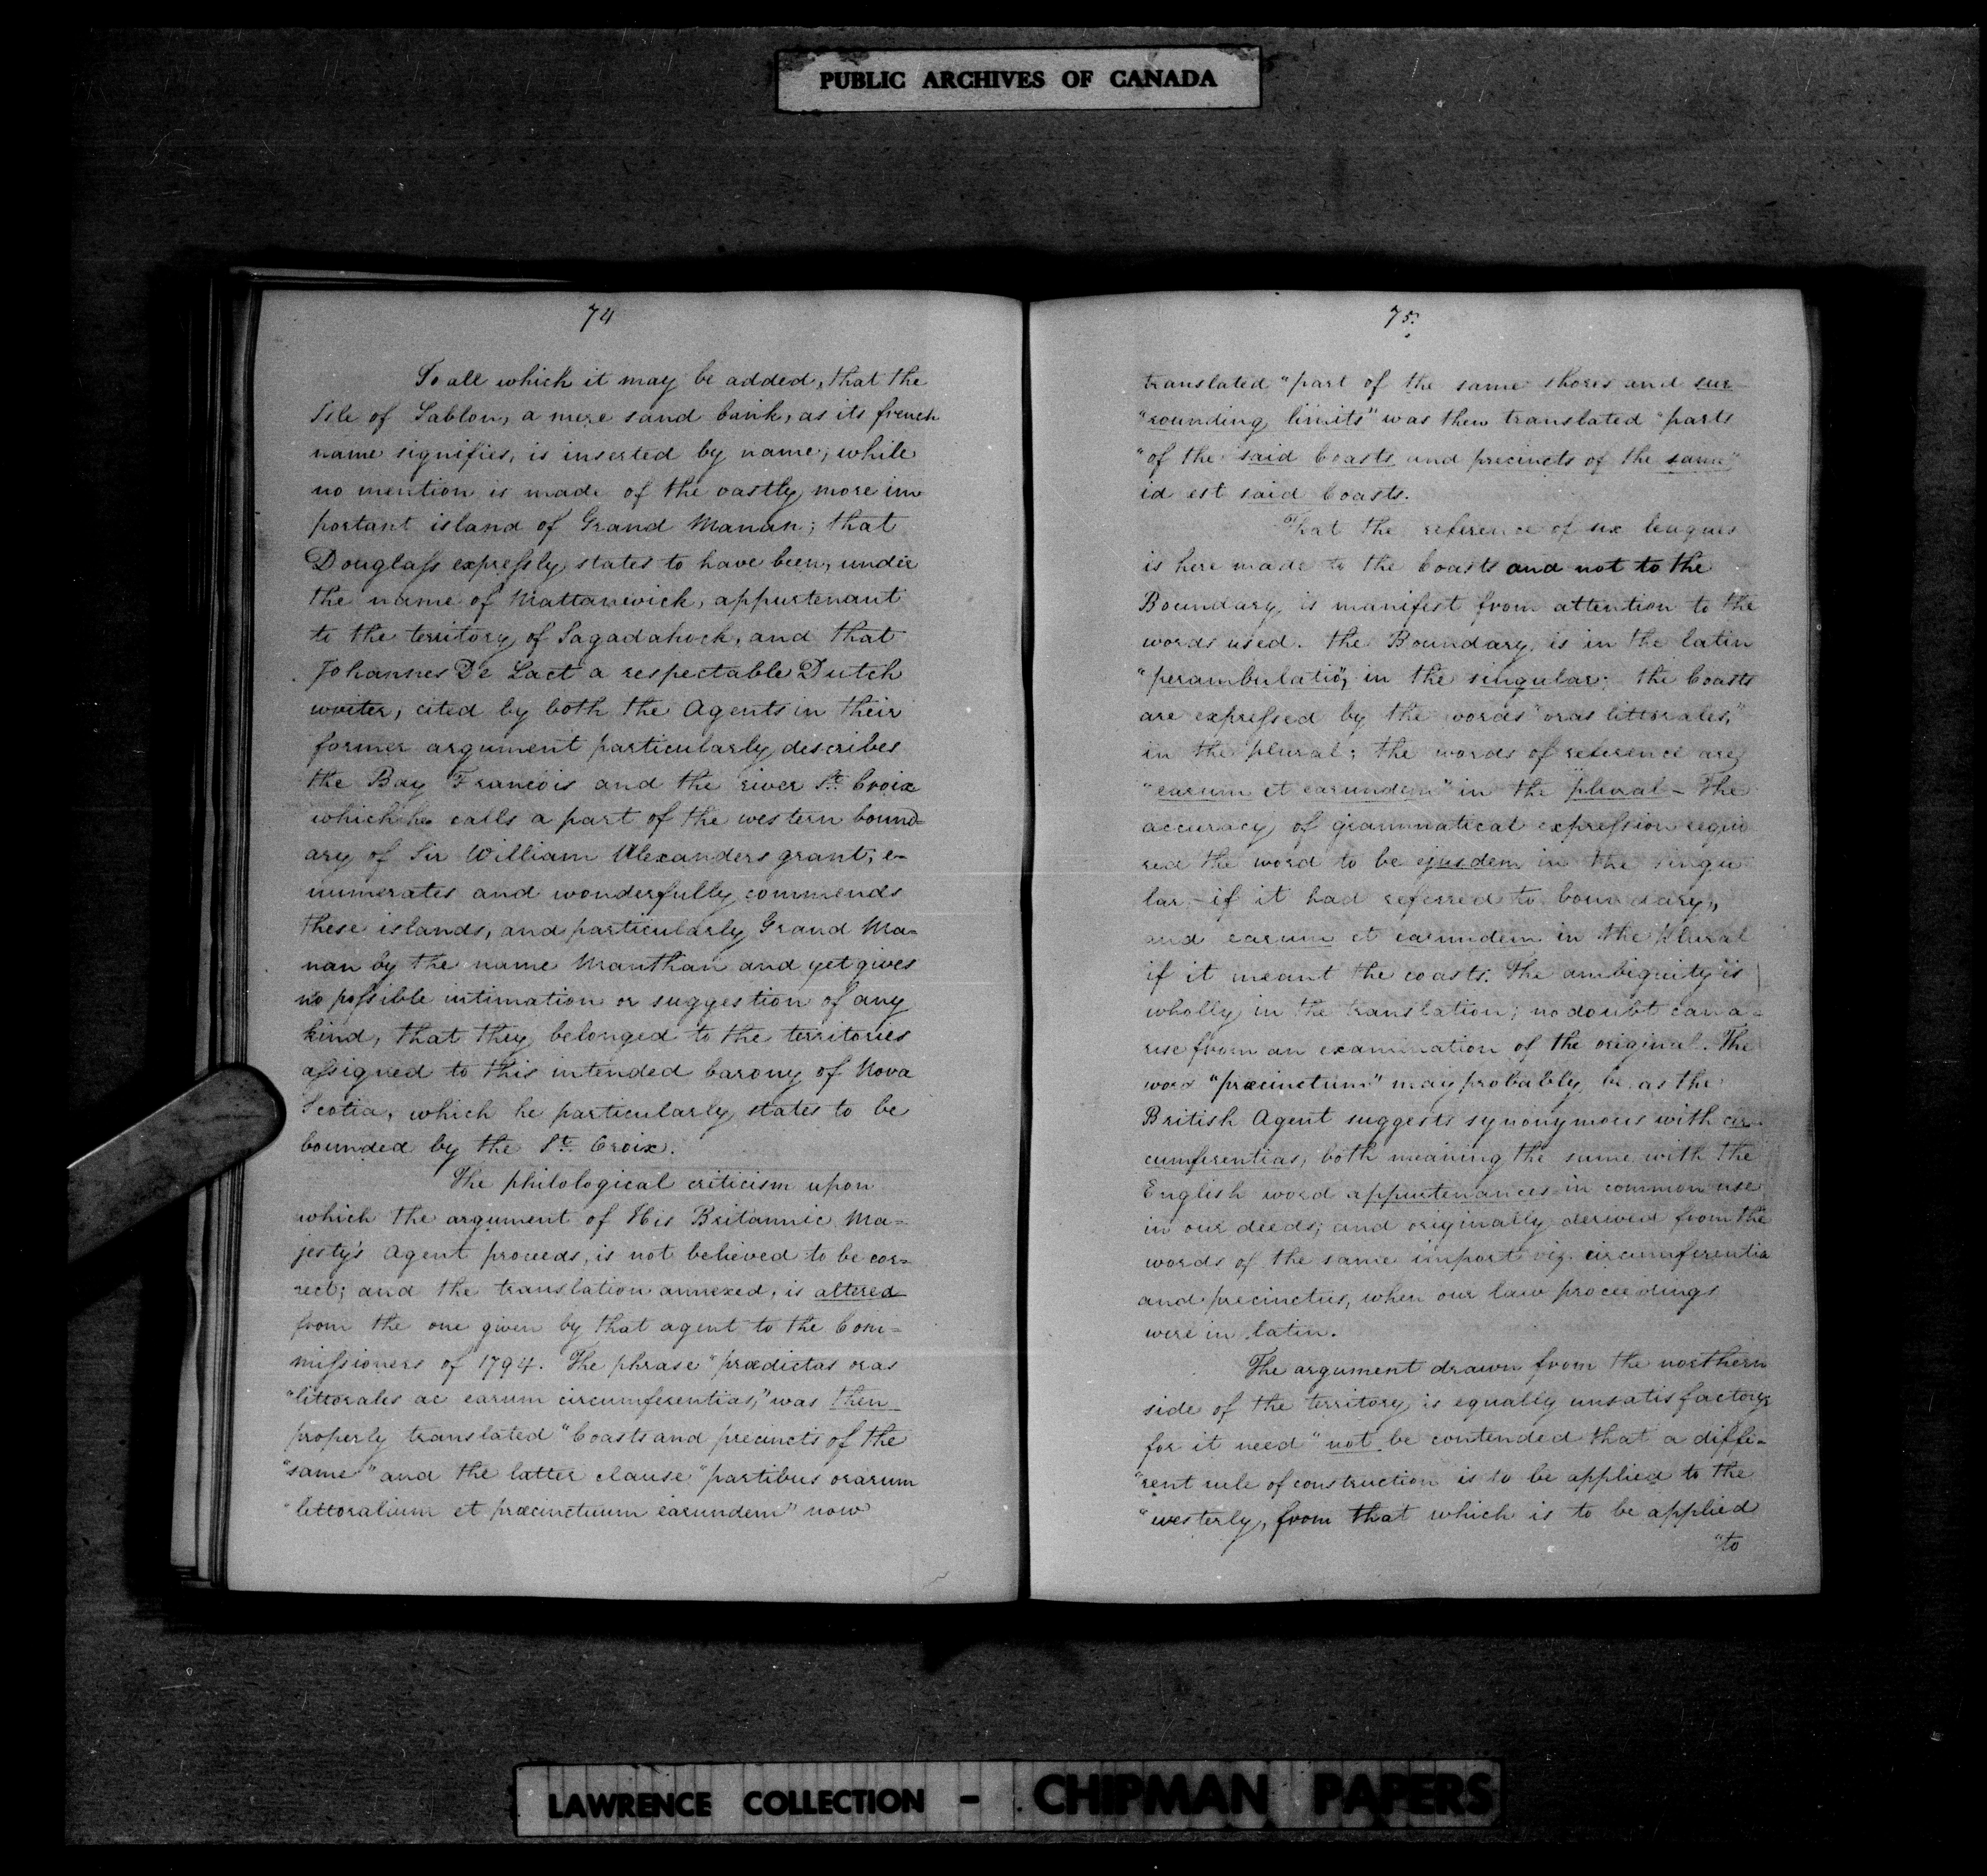 PUBLIC ARCHIVES OF CANADA
74
To all which it may be added, that the
Isle of Sablon, a mere sand bank, as its french
name signifies, is inserted by name, while
no mention is made of the vastly more im
portant island of Grand Manan; that
Douglass expressly states to have been, under
the name of Mattanwick, appurtenant
to the territory of Sagadahock, and that
Johannes De Laet a respectable Dutch
writer, cited by both the Agents in their
former argument particularly describes
the Bay Francois and the river St. Croix
which he calls a part of the western bound-
ary of Sir William Alexanders grant; e-
numerates and wonderfully commends
these islands, and particularly Grand Ma-
nan by the name Manthan and yet gives
no possible intimation or suggestion of any
kind, that they belonged to the territories
assigned to this intended barony of Nova
Scotia, which he particularly states to be
bounded by the St. Croix.
The philological criticism upon
which the argument of His Britannic Ma-
jesty's Agent proceeds, is not believed to be cor-
rect; and the translation annexed, is altered
from the one given by that agent to the Com-
missioners of 1794. The phrase "prædictas oras
"littorales ac earum circumferentias," was then
properly translated "Coasts and precincts of the
"same" and the latter clause "partibus orarum
"littoralium et præcinctuum earundem" now
75.
translated "part of the same shores and sur-
"rounding limits" was then translated "parts
"of the said Coasts and precincts of the same"
id est said Coasts.
That the reference of six leagues
is here made to the Coasts and not to the
Boundary, is manifest from attention to the
words used. the Boundary, is in the latin
"perambulatio", in the singular; the Coasts
are expressed by the words "oras littorales,"
in the plural; the words of reference are,
"earum et earundem" in the plural - The
accuracy of grammatical expression requi
red the word to be ejusdem in the singu
lar - if it had referred to boundary,
and earum et earundem in the plural
if it meant the coasts. The ambiguity is
wholly in the translation; no doubt can a-
rise from an examination of the original. The
word "præcinctum" may probably be as the
British Agent suggests synonymous with cir-
cumferentias, both meaning the same with the
English word appurtenances in common use
in our deeds; and originally derived from the
words of the same import viz. circumferentia
and precinctus, when our law proceedings
were in latin.
The argument drawn from the northern
side of the territory is equally unsatisfactory
for it need "not be contended that a diffe-
"rent rule of construction is to be applied to the
"westerly, from that which is to be applied
"to
LAWRENCE COLLECTION - CHIPMAN PAPERS